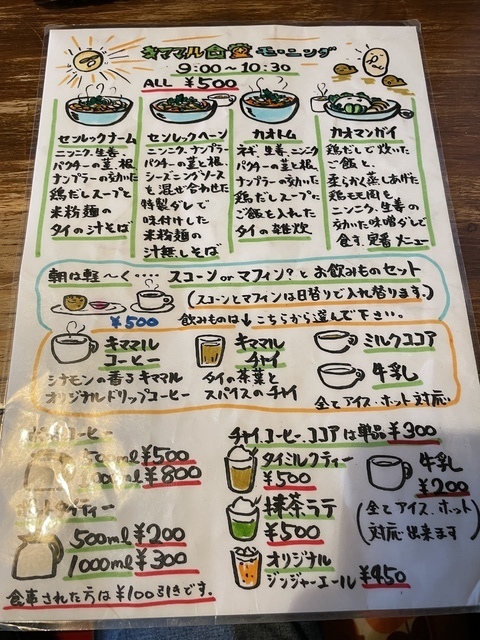 キママル食堂 モーニング
9:00〜10:30
ALL ¥500
センレックナーム
ニンニク、生姜、
パクチーの茎、根、
ナンプラーの効いた
鶏だしスープと
米粉麺の
タイの汁そば
センレックヘーン
ニンニク、ナンプラー
パクチーの茎と根、
シーズニングソース
を混ぜ合わせた
特製ダレで
味付けした
米粉麺の
汁無しそば
カオトム
ネギ、生姜、ニンニク
パクチーの茎、根、
ナンプラーの効いた
鶏だしスープに
ご飯を入れた
タイの雑炊
カオマンガイ
鶏だしで炊いた
ご飯と、
柔らかく蒸しあげた
鶏モモ肉を
ニンニク、生姜、の
効いた味噌ダレで
食す、定番メニュー
朝は軽〜く・・・・ スコーン or マフィン?と お飲みものセット
(スコーンとマフィンは日替りで入れ替ります。)
¥500 飲みものは↓こちらから選んで下さい。
キママル
コーヒー
シナモンの香るキママル
オリジナルドリップコーヒー
キママル
チャイ
タイの茶葉と
スパイスのチャイ
ミルクココア
牛乳
全てアイス、ホット対応
ポットコーヒー
500ml ¥500
1000ml ¥800
ホットタイティー
500ml ¥200
1000ml ¥300
食事された方は¥100引きです。
チャイ、コーヒー、ココアは単品¥300
タイミルクティー
¥500
抹茶ラテ
¥500
オリジナル
ジンジャーエール ¥450
牛乳
¥200
(全てアイス、ホット
対応出来ます)